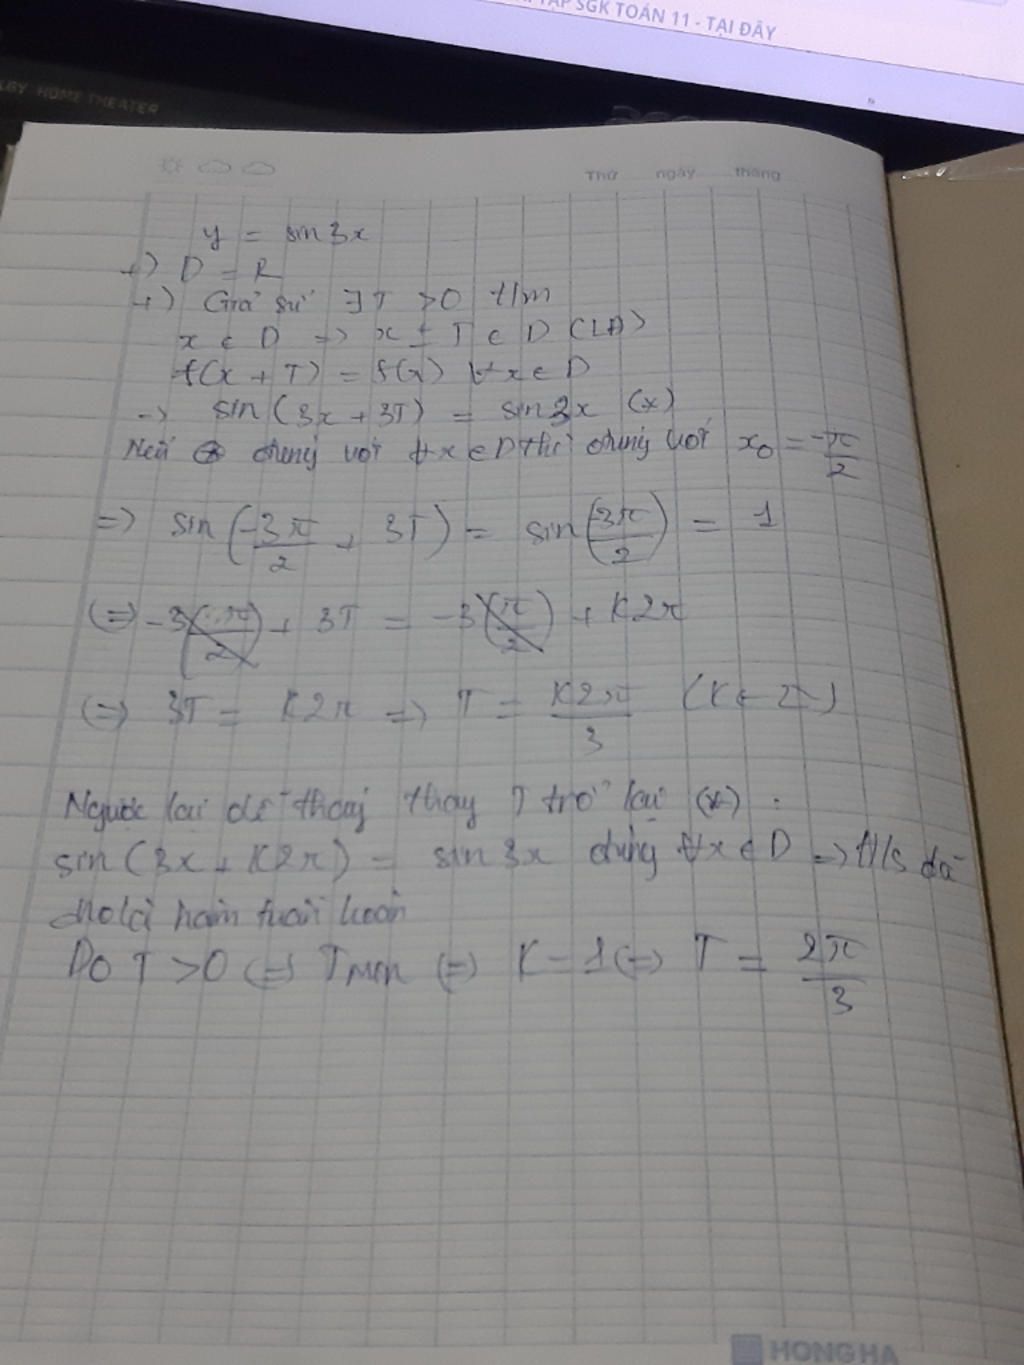 TẬP SGK TOÁN 11 - TẠI ĐÂY
HOME THEATER
Thứ ngày tháng
y = sin 3x
+) D = R
+) Giả sử ∃ T > 0 t/m
x ∈ D => x ± T ∈ D (LĐ)
f(x + T) = f(x) ∀x ∈ D
=> sin(3x + 3T) = sin 3x (*)
Nếu đúng với ∀x ∈ D thì đúng với x₀ = -π/2
=> sin(-3π/2 + 3T) = sin(-3π/2) = 1
(=) -3(π/2) + 3T = -3(π/2) + K2π
(=) 3T = K2π => T = K2π/3 (K ∈ Z)
Ngược lại dễ thấy thay T trở lại (*) :
sin(3x + K2π) = sin 3x đúng ∀x ∈ D => H/s đã
cho là hàm tuần hoàn
Do T > 0 (=) Tmin (=) K = 1 (=) T = 2π/3
HONG HA